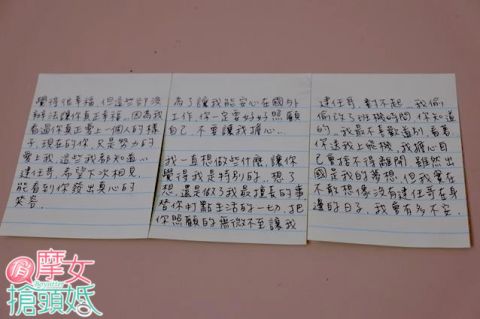 達任哥,對不起,我偷
偷改了班機時間,你知道
的,我最不喜歡道別,看著
你送我上飛機,我擔心自
己會捨不得離開,雖然出
國是我的夢想,但我實在
不敢想像沒有達任哥在身
邊的日子,我會有多不安.
為了讓我能安心在國外
工作,你一定要好好照顧
自己,不要讓我擔心.
我一直想做些什麼,讓你
覺得我是特別的,想了
想,還是做了我最擅長的事,
替你打點生活的一切,把
你照顧的無微不至讓我
覺得很幸福,但這些卻沒
辦法讓你真正幸福,因為我
看過你真正愛上一個人的樣
子,現在的你,只是努力的
愛上我,這些我都知道.
達任哥,希望下次相見,
能看到你發出真心的
笑容.
俏摩女
搶頭婚